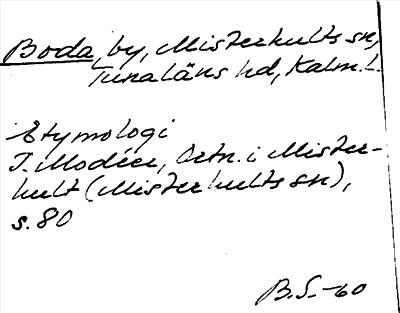 Boda, by, Misterhults sn,
Tunaläns hd, Kalm. l.
Etymologi
I. Modéer, Ortn. i Mister-
hult (Misterhults sn),
s. 80
B.S.-60